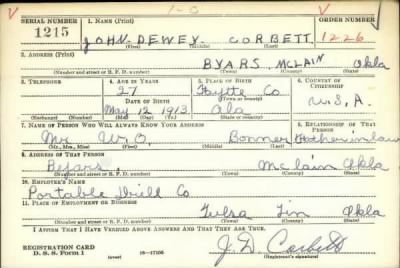 1-C
SERIAL NUMBER 1. NAME (Print) ORDER NUMBER
1215 JOHN DEWEY CORBETT 1226
(First) (Middle) (Last)
2. ADDRESS (Print)
BYARS MCLAIN Okla
(Number and street or R. F. D. number) (Town) (County) (State)
3. TELEPHONE 4. AGE IN YEARS 5. PLACE OF BIRTH 6. COUNTRY OF CITIZENSHIP
27 Fayette Co
DATE OF BIRTH (Town or county)
May 12 1913 Ala U.S.A.
(Exchange) (Number) (Mo.) (Day) (Yr.) (State or country)
7. NAME OF PERSON WHO WILL ALWAYS KNOW YOUR ADDRESS 8. RELATIONSHIP OF THAT PERSON
Mr. W. O. Bonner Father in law
(Mr., Mrs., Miss) (First) (Middle) (Last)
9. ADDRESS OF THAT PERSON
Byars, McLain Okla
(Number and street or R. F. D. number) (Town) (County) (State)
10. EMPLOYER'S NAME
Portable Drill Co
11. PLACE OF EMPLOYMENT OR BUSINESS
Tulsa Okla
(Number and street or R. F. D. number) (Town) (County) (State)
I AFFIRM THAT I HAVE VERIFIED ABOVE ANSWERS AND THAT THEY ARE TRUE.
REGISTRATION CARD J. D. Corbett
D. S. S. Form 1 (over) 16-17105 (Registrant's signature)